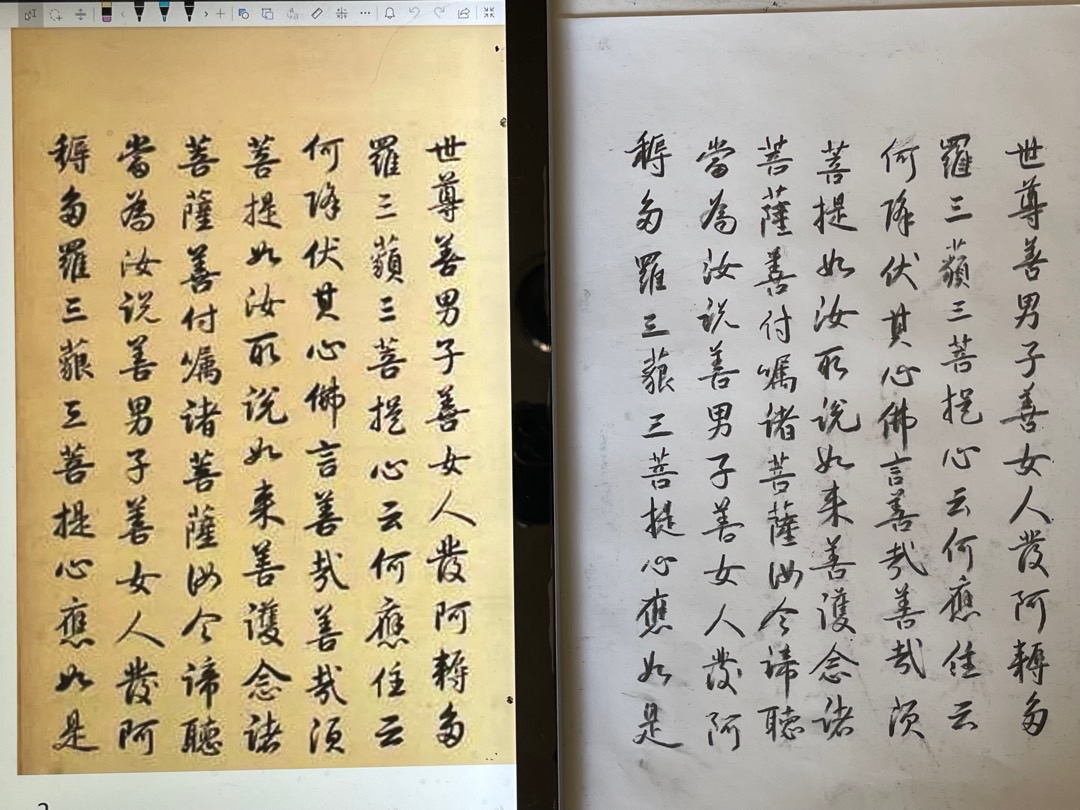 世尊善男子善女人發阿耨多
羅三藐三菩提心云何應住云
何降伏其心佛言善哉善哉須
菩提如汝所說如来善護念諸
菩薩善付嘱諸菩薩汝今諦聽
當為汝說善男子善女人發阿
耨多羅三藐三菩提心應如是
世尊善男子善女人發阿耨多
羅三藐三菩提心云何應住云
何降伏其心佛言善哉善哉須
菩提如汝所說如来善護念諸
菩薩善付嘱諸菩薩汝今諦聽
當為汝說善男子善女人發阿
耨多羅三藐三菩提心應如是